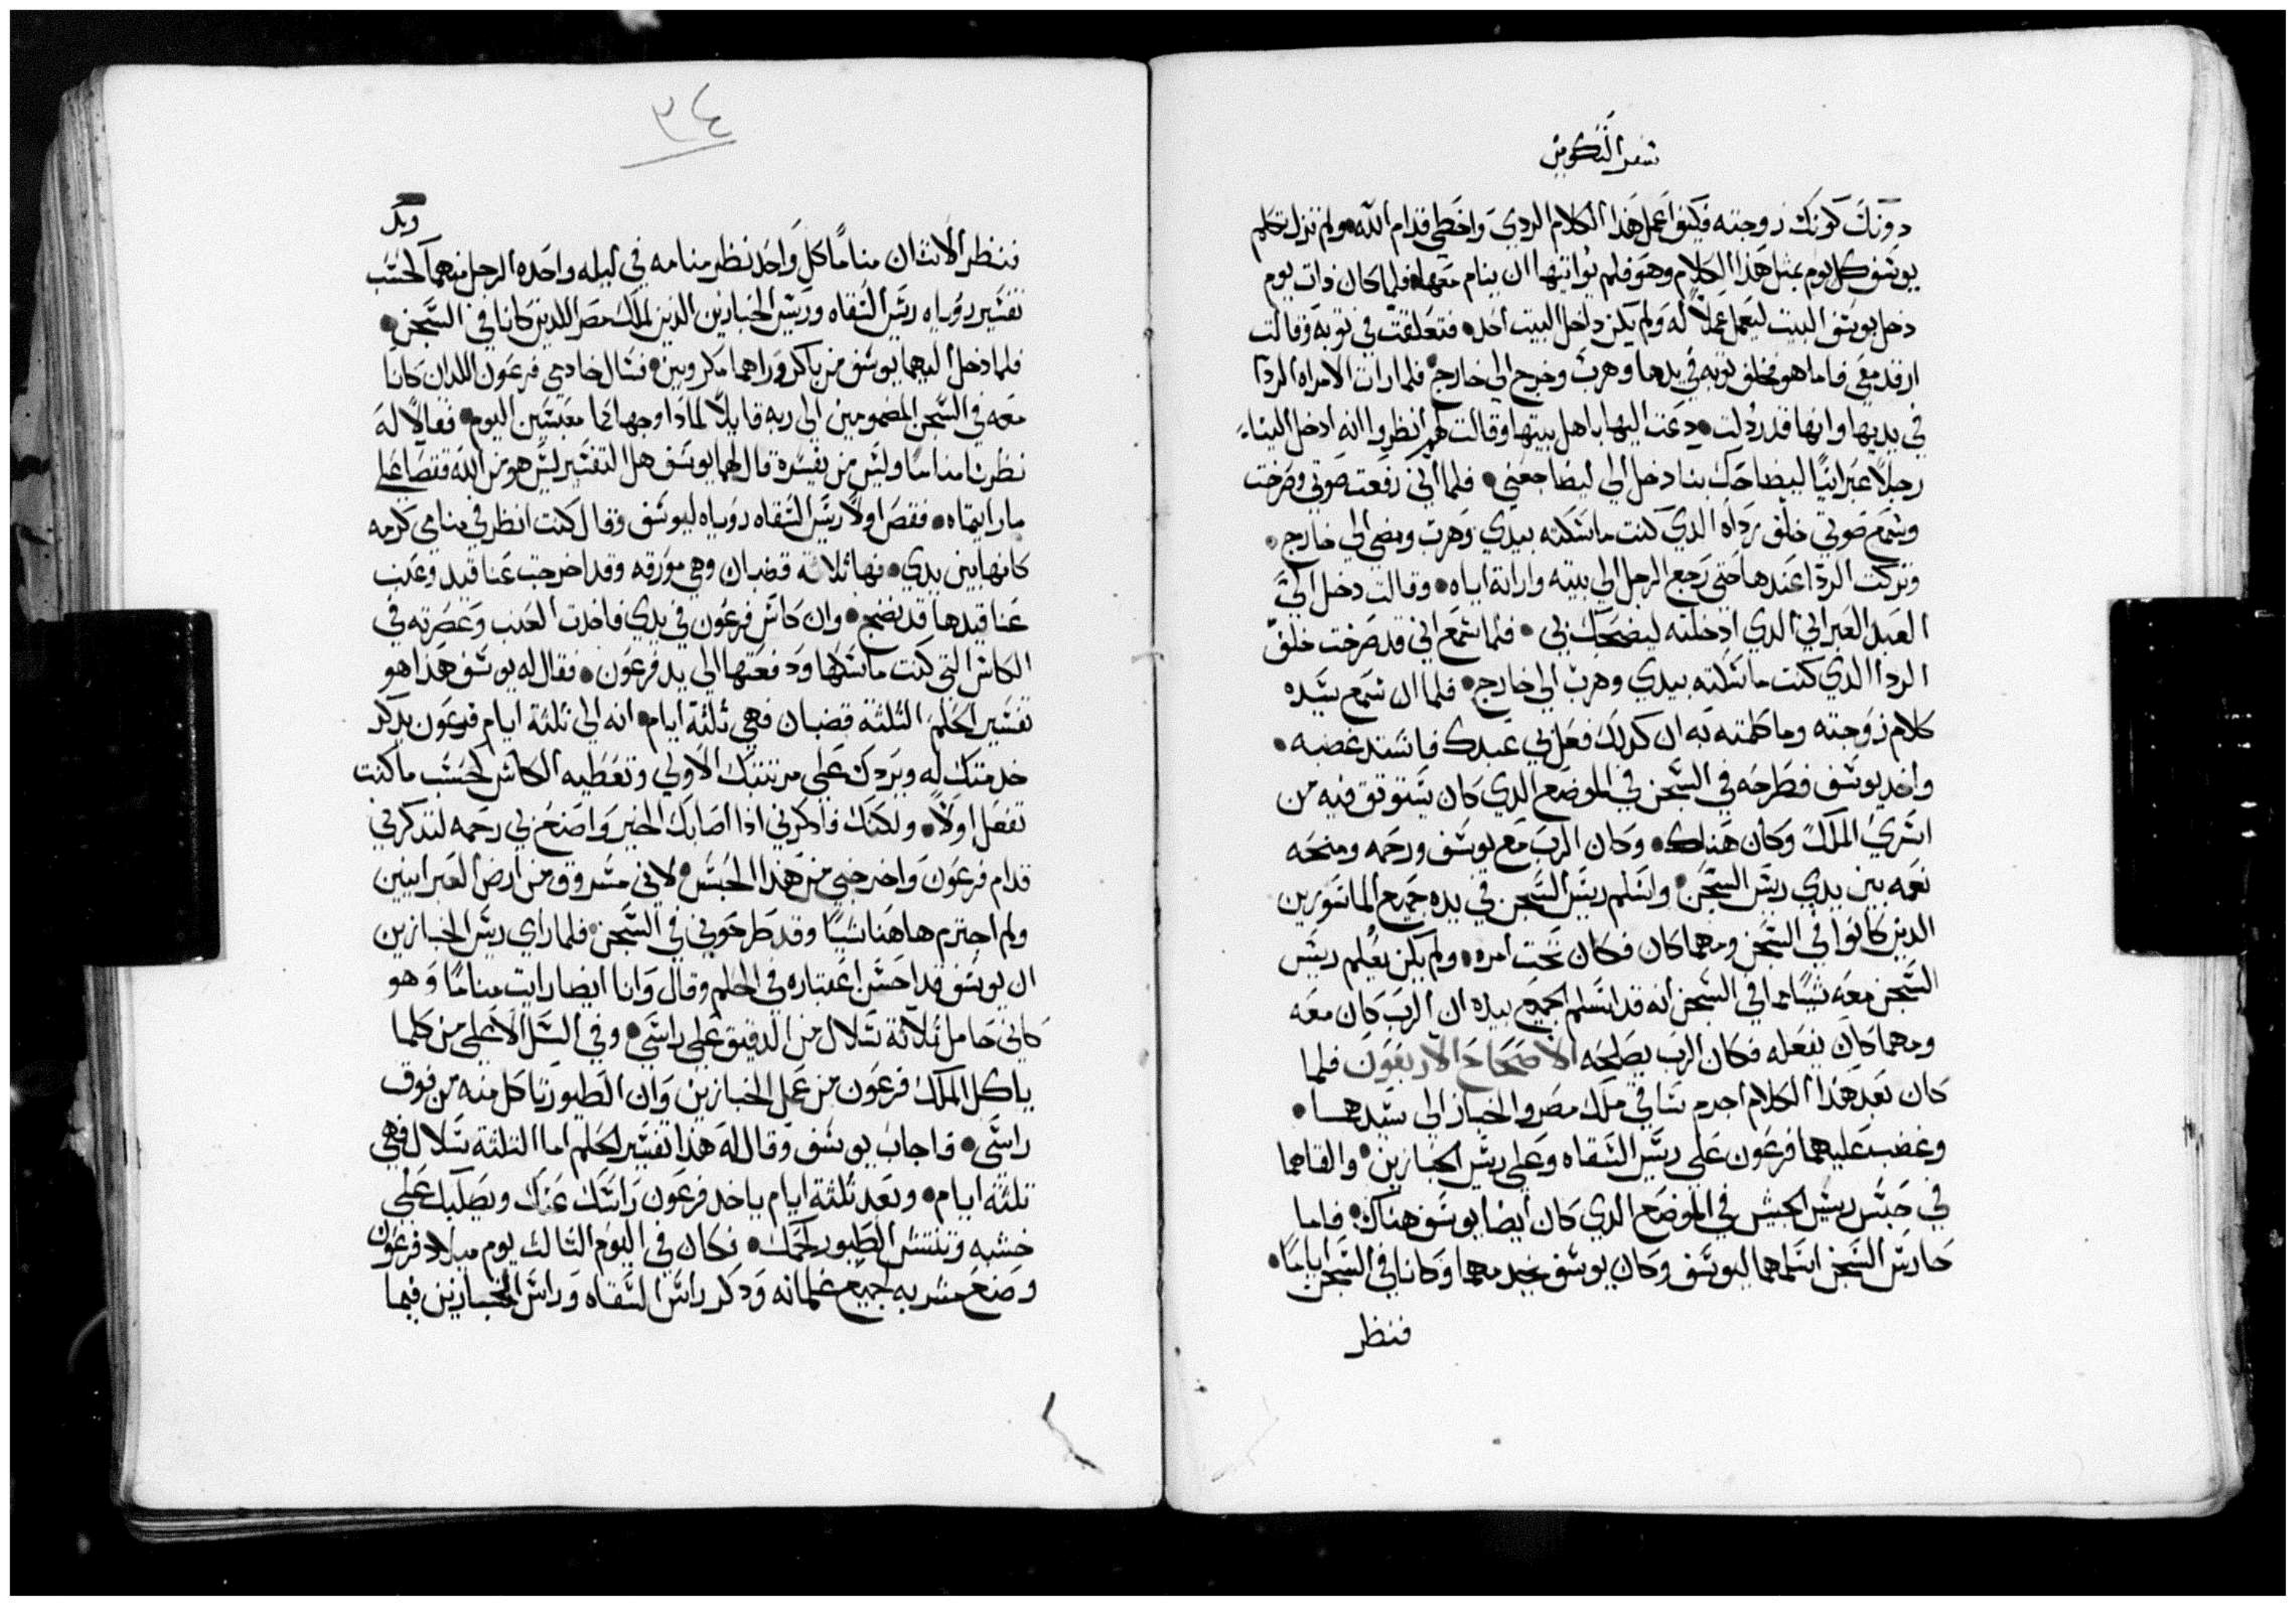 سفر التكوين
دونك كونك زوجته فكيف اعمل هذا الكلام الردي واخطي قدام الله ولم تزل تكلم
يوسف كل يوم بمثل هذا الكلام وهو فلم يواتيها ان ينام معها فلما كان ذات يوم
دخل يوسف البيت ليعمل عملاً له ولم يكن داخل البيت احد فتعلقت في توبه وقالت
ارقد معي فاما هو فخلف توبه في يدها وهرب وخرج الي خارج فلما رات الامراه الردا
في يديها وانها قد ردلت دعت اليها باهل بيتها وقالت لهم انظروا انه ادخل الينا
رجلاً عبرانيًا ليضاحك بنا دخل الي ليضاجعني فلما اني رفعت صوتي وصرخت
وسمع صوتي خلف رداه الدي كنت ماسكته بيدي وهرب ومضي الي خارج
وتركت الردا عندها حتى رجع الرجل الي بيته وارانة اياه وقالت دخل الي
العبد العبراني الدي ادخلته ليضحك بي فلما سمع اني قد صرخت خلف
الردا الدي كنت ماسكته بيدي وهرب الي خارج فلما ان سمع سيده
كلام زوجته وما كلمته به ان كدلك فعل بي عبدك فاشتد غضبه
واخد يوسف فطرحه في السجن في الموضع الدي كان يستوتق فيه من
اسري الملك وكان هناك وكان الرب مع يوسف ورحمه ومنحه
نعمه بين يدي ريس السجن واسلم ريس السجن في يده جميع الماسورين
الدين كانوا في السجن ومهما كان فكان تحت امره ولم يكن يعلم ريس
السجن معه شيًا مما في السجن انه قد اسلم الجميع بيده ان الرب كان معه
ومهما كان يفعله فكان الرب يصلحه الاصحاح الاربعون فلما
كان بعد هذا الكلام اجرم ساقي ملك مصر والخباز الي سيدهما
وغضب عليهما فرعون علي ريس السقاه وعلي ريس الخبازين والقاهما
في حبس ريس الحبس في الموضع الدي كان ايضا يوسف هناك فاما
حارس السجن اسلمهما ليوسف وكان يوسف يخدمهما وكانا في السجن ايامًا
فنظر
٣٤
وبكر
فنظر الاتنان منامًا كل واحد نظر منامه في ليله واحده الرجل منهما كحسب
تفسير روياه ريس السقاه وريس الخبازين الدين لملك مصر اللدين كانا في السجن
فلما دخل اليهما يوسف من باكر وراهما مكروبين فسال خادمي فرعون اللدان كانا
معه في السجن المضمومين الي ربه قايلاً لمادا وجهاكما معبسين اليوم فقالا له
نظرنا منامًا وليس من يفسره قال لهما يوسف هل التفسير ليس هو من الله فقصا علي
ما رايتماه فقص اولاً ريس السقاه روياه ليوسف وقال كنت انظر في منامي كرمه
كانها بين يدي فيها تلاتة قضبان وهي مورقه وقد اخرجت عناقيد وعنب
عناقيدها قد نضج وان كاس فرعون في يدي فاخدت العنب وعصرته في
الكاس التي كنت ماسكها ودفعتها الي يد فرعون فقال له يوسف هدا هو
تفسير الحلم التلتة قضبان فهي تلتة ايام انه الي تلتة ايام فرعون يدكر
خدمتك له ويردك علي مرتبتك الاولي وتعطيه الكاس كحسب ما كنت
تفعل اولاً ولكنك فادكرني ادا اصابك الخير واصنع بي رحمه لتدكرني
قدام فرعون واخرجني من هدا الحبس لاني مسروق من ارض العبرانيين
ولم اجترم هاهنا شيًا وقد طرحوني في السجن فلما راي ريس الخبازين
ان يوسف قد احسن اعتباره في الحلم وقال وانا ايضا رايت منامًا وهو
كاني حامل تلاتة سلال من الدقيق علي راسي وفي السل الاعلي من كلما
ياكل الملك فرعون من عمل الخبازين وان الطيور تاكل منه من فوق
راسي فاجاب يوسف وقال له هدا تفسير الحلم اما التلتة سلال فهي
تلتة ايام وبعد تلتة ايام ياخد فرعون راسك عنك ويصلبك علي
خشبه وتنتش الطيور لحمك فكان في اليوم التالت يوم ميلاد فرعون
وصنع مشربه لجميع غلمانه ودكر راس السقاه وراس الخبازين فيما